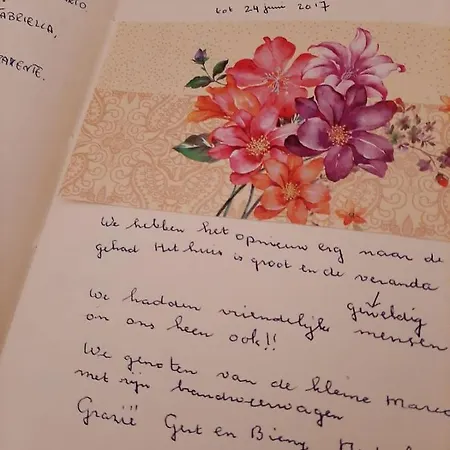 RIO
GABRIELLA,
PARENTE.
tot 24 juni 2017
We hebben het opnieuw erg naar de
gehad Het huis is groot en de veranda
geweldig
We hadden vriendelijke mensen
om ons heen ook!!
We genoten van de kleine Marco
met zijn brandweerwagen
Grazië Gert en Bieny